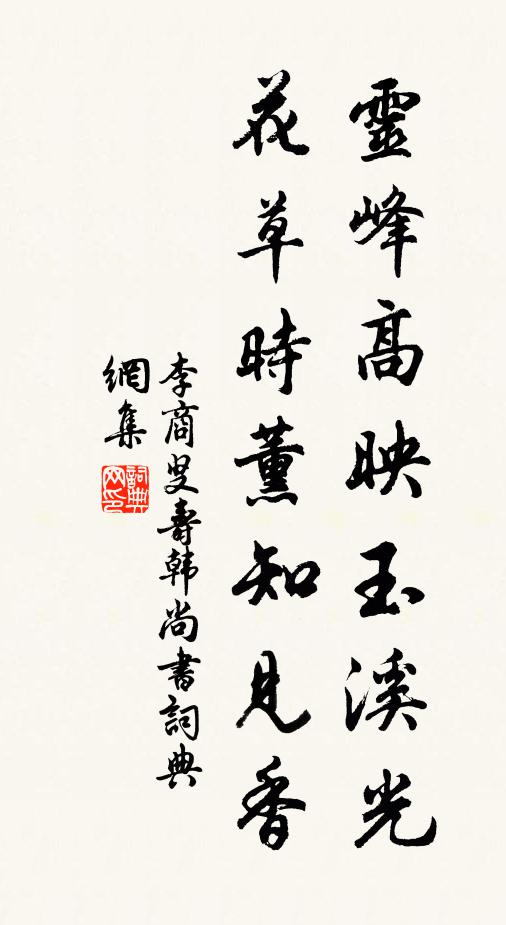 靈峰高映玉溪光
花草時薰知見香
李商叟壽韓尚書詞典
網集
詞典網印